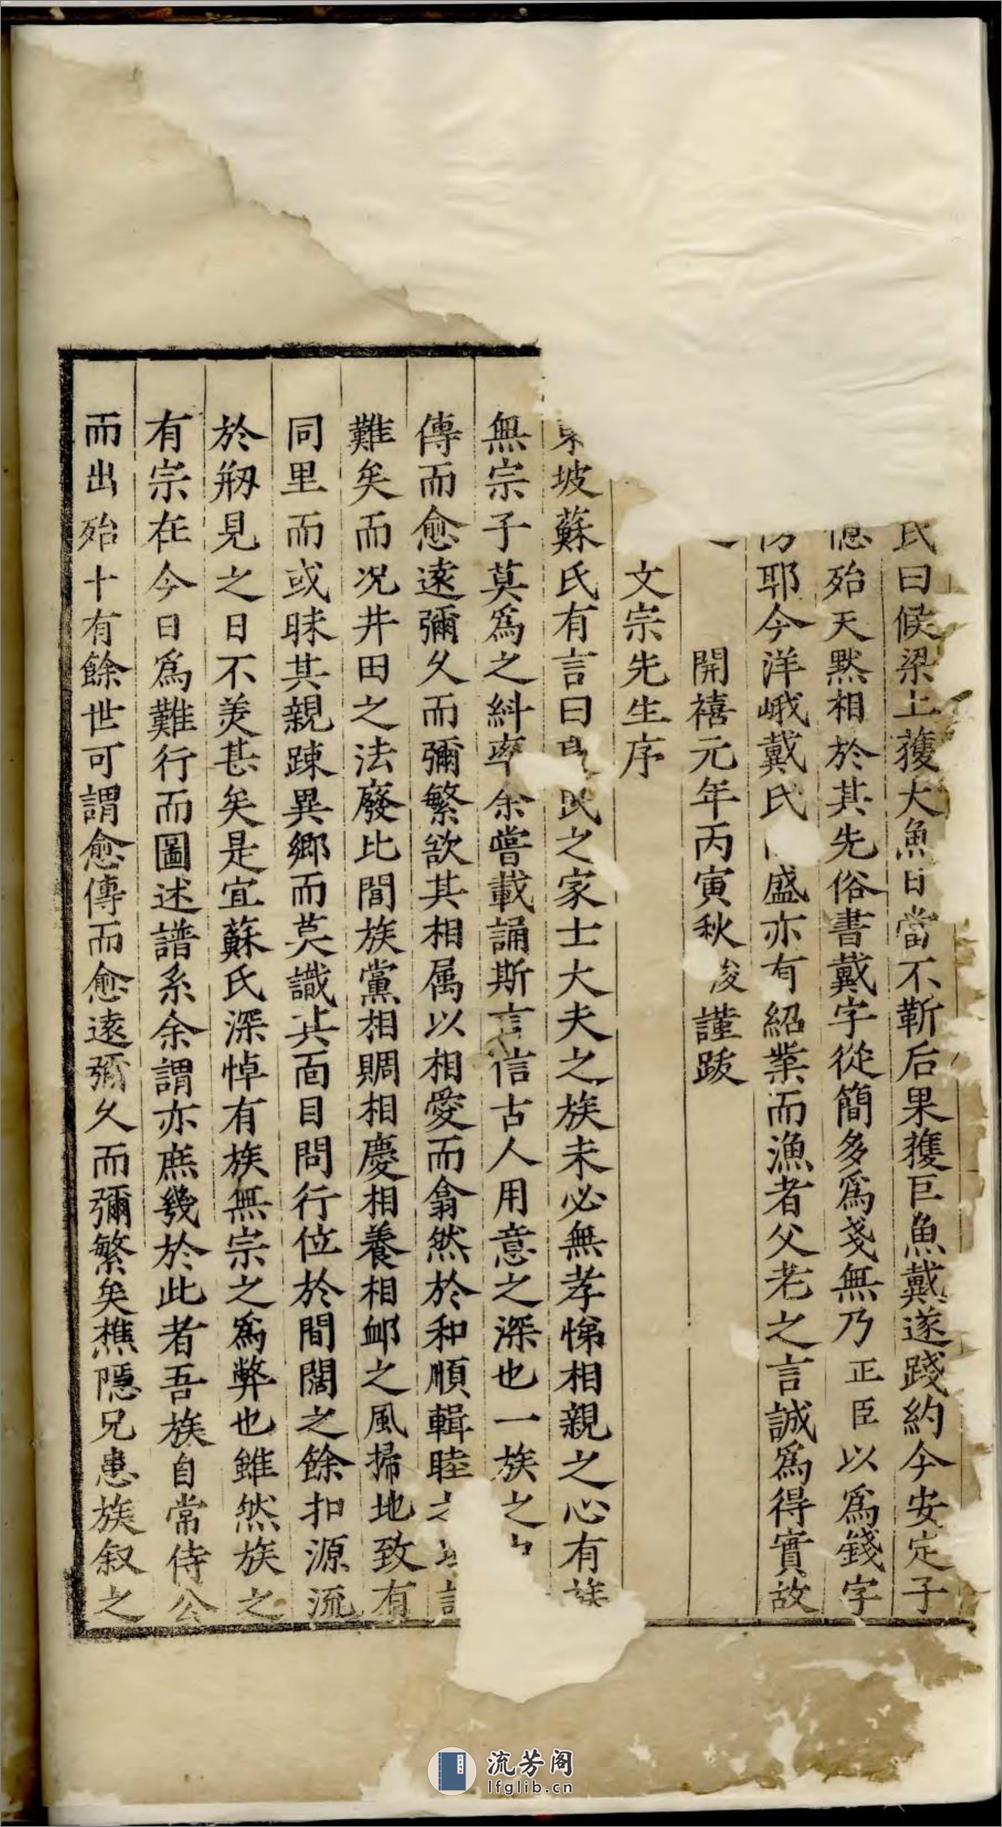 氏曰候梁上獲大魚日當不靳后果獲巨魚戴遂踐約今安定子
憶殆天黙相於其先俗書戴字從簡多爲戔無乃正臣以爲錢字
耶今洋峨戴氏盛亦有紹業而漁者父老之言誠爲得實故
開禧元年丙寅秋浚謹跋
文宗先生序
東坡蘇氏有言曰民之家士大夫之族未必無孝悌相親之心有族
無宗子莫爲之紏率余嘗載誦斯言信古人用意之深也一族之
傳而愈遠彌久而彌繁欲其相属以相愛而翕然於和順輯睦
難矣而况井田之法廢比閭族黨相賙相慶相養相衈之風掃地致有
同里而或昧其親踈異鄉而莫識其面目問行位於間闊之餘扣源流
於剏見之日不羑甚矣是宜蘇氏深悼有族無宗之爲弊也雖然族之
有宗在今日爲難行而圖述譜系余謂亦庶幾於此者吾族自常侍公
而出殆十有餘世可謂愈傳而愈遠彌久而彌繁矣樵隱兄患族叙之
流芳阁
lfglib.cn